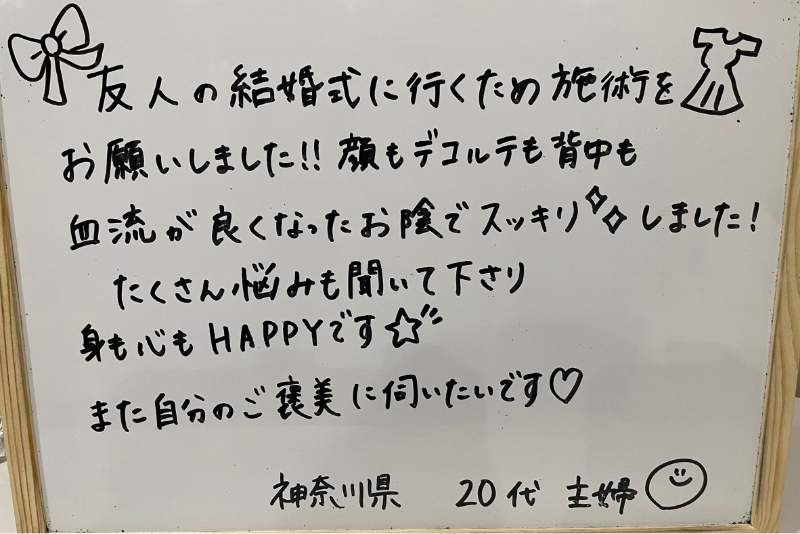 友人の結婚式に行くため施術を
お願いしました!! 顔もデコルテも背中も
血流が良くなったお陰でスッキリしました!
たくさん悩みも聞いて下さり
身も心もHAPPYです☆
また自分のご褒美に伺いたいです♡
神奈川県 20代 主婦